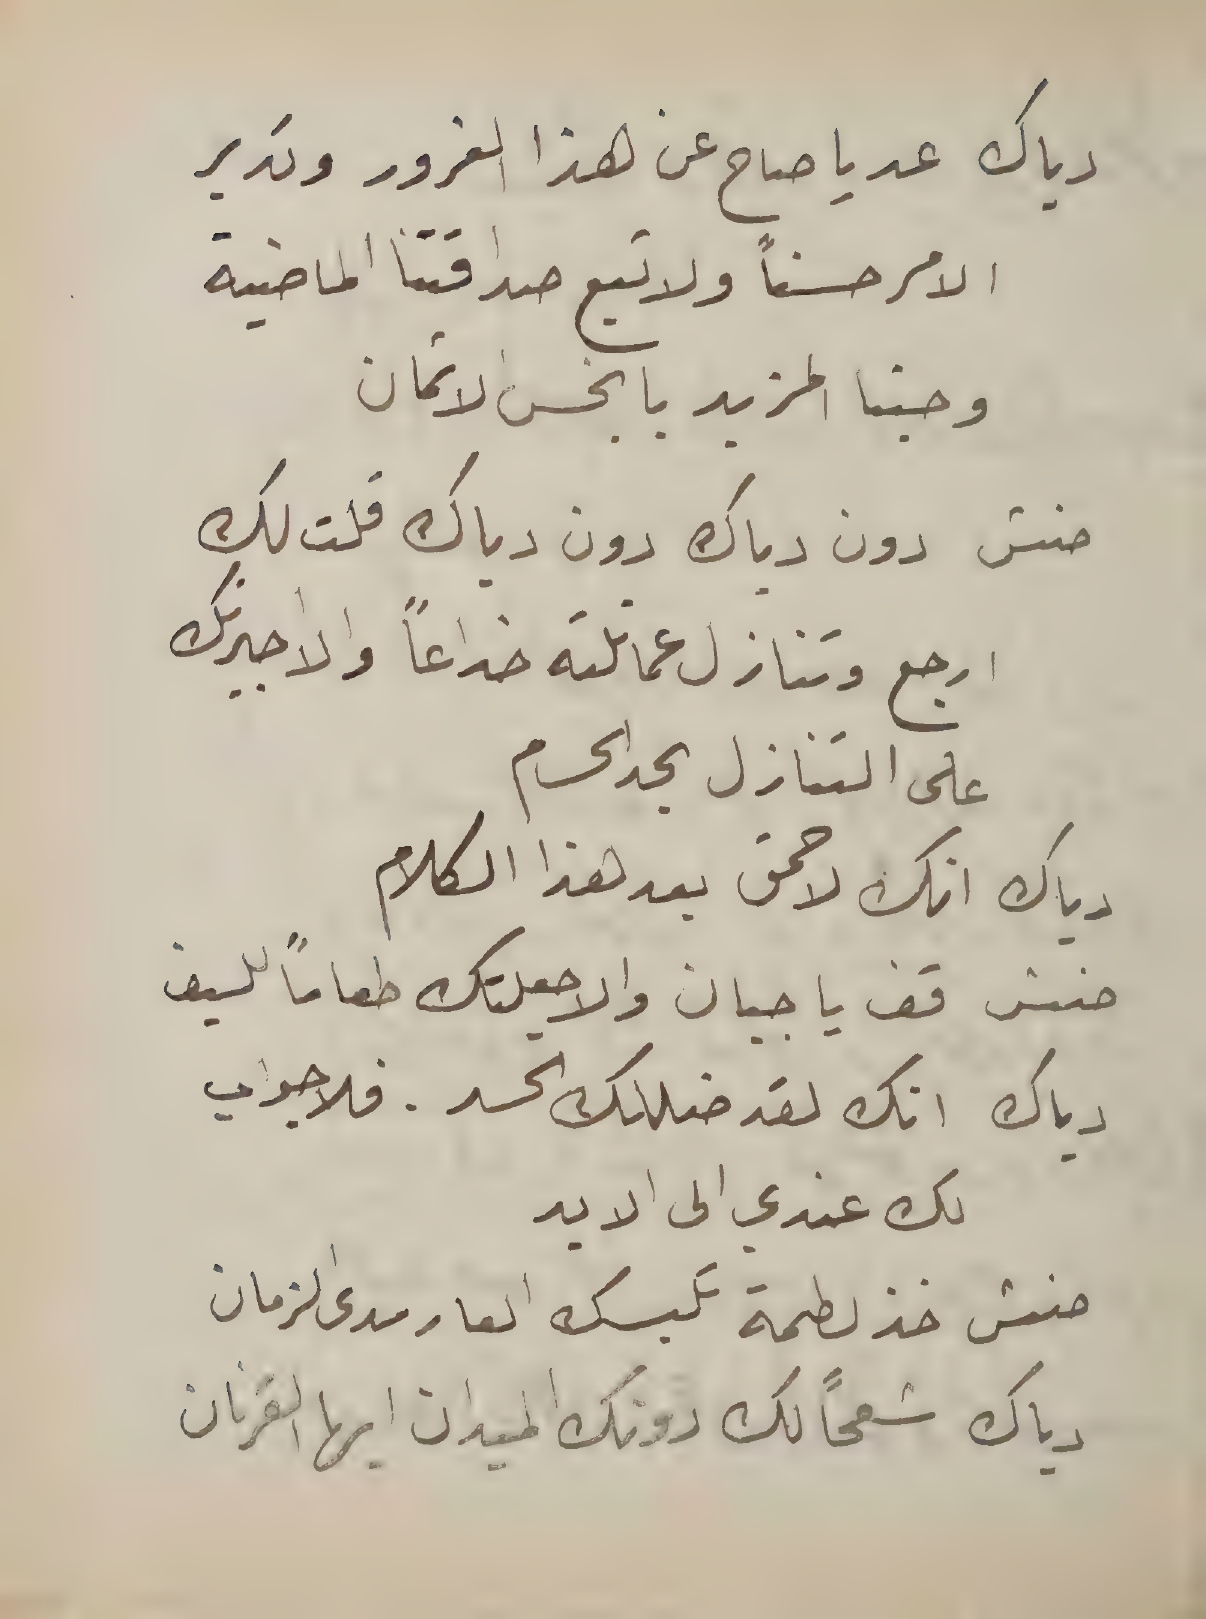 دياك عد يا صاح عن هذا الغرور وتدبر
الامر حسناً ولا تبع صداقتنا الماضية
وحبنا المزيد بابخس الاثمان
حنش دون دياك دون دياك قلت لك
ارجع وتنازل عما قلته خداعاً والا جبرتك
على التنازل بحد الحسام
دياك انك لاحمق بعد هذا الكلام
حنش قف يا جبان والا جعلتك طعاماً للسيف
دياك انك لقد ضللك الحسد . فلا جواب
لك عندي الى الابد
حنش خذ لطمة تلبسك العار مدى الزمان
دياك سحقاً لك دونك الميدان ايها القرنان